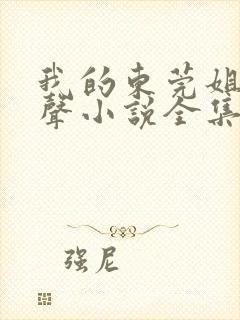 我的东莞姐
聲小说全集
强尼